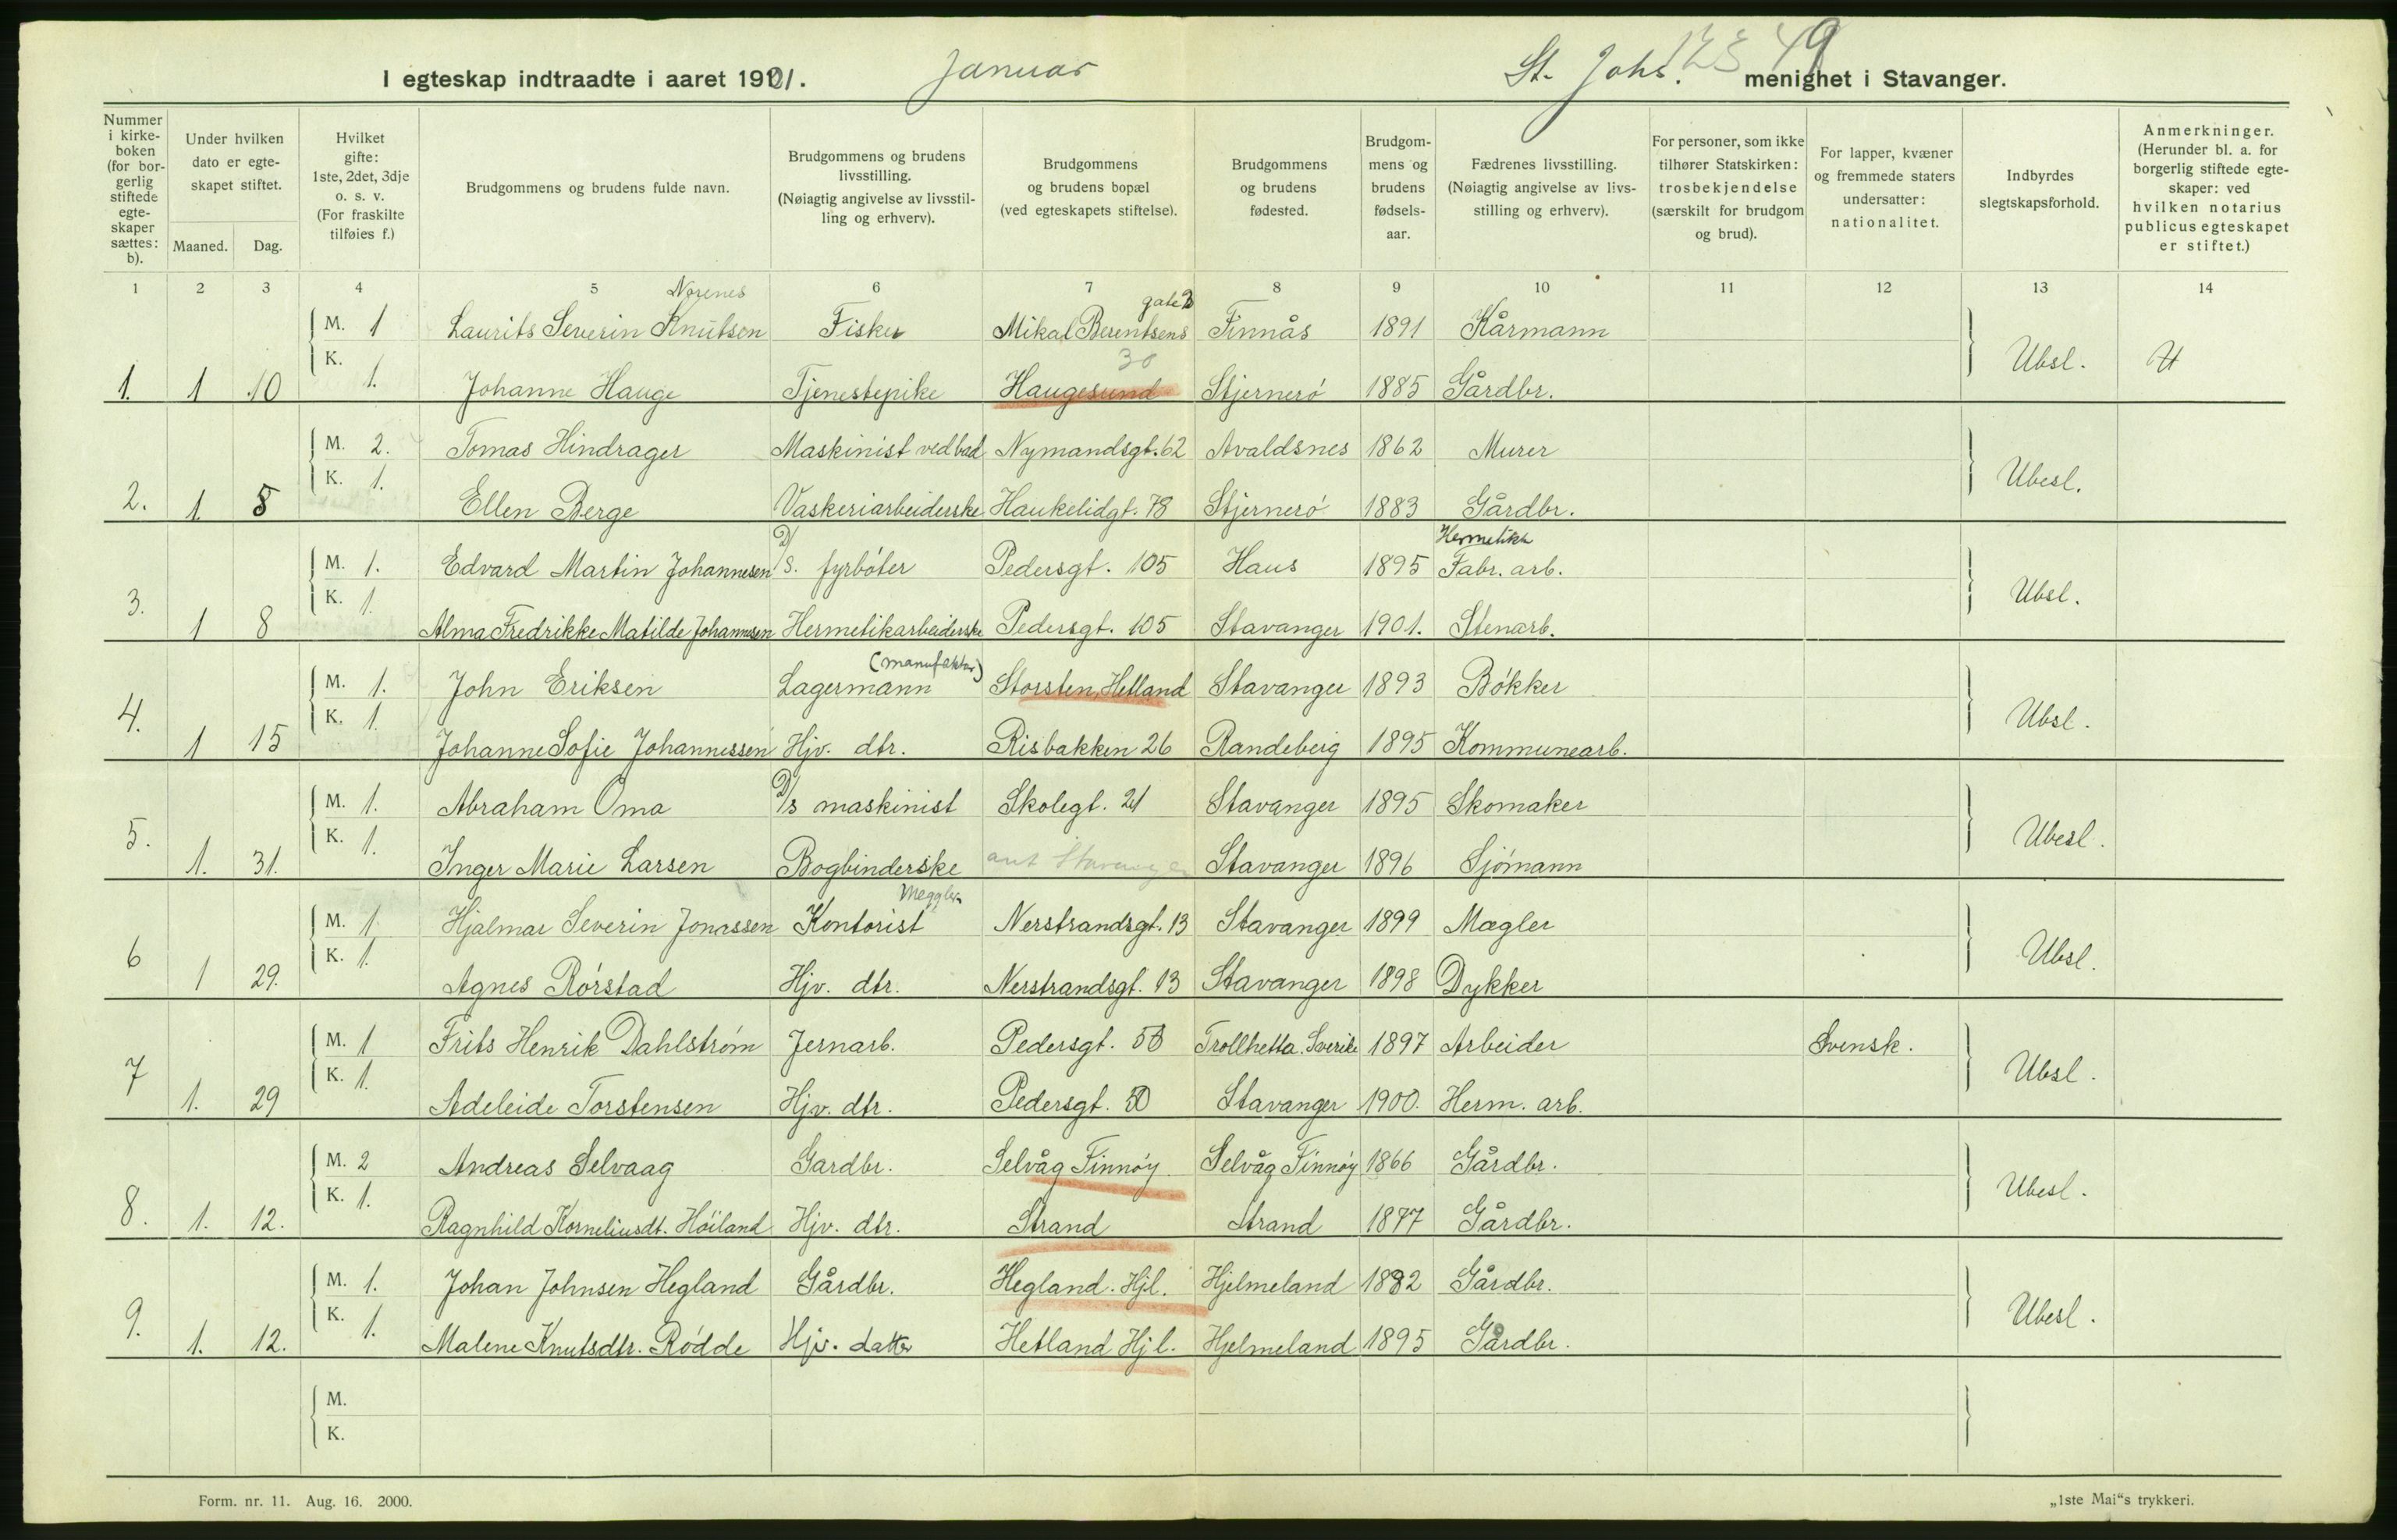 I egteskap indtraadte i aaret 1921. Januar St. Johs. menighet i Stavanger.
Nummer i kirke-boken (for bor-gerlig stiftede egte-skaper sættes: b).
Under hvilken dato er egte-skapet stiftet.
Maaned. Dag.
Hvilket gifte: 1ste, 2det, 3dje o. s. v. (For fraskilte tilføies f.)
Brudgommens og brudens fulde navn.
Brudgommens og brudens livsstilling. (Nøiagtig angivelse av livsstil-ling og erhverv).
Brudgommens og brudens bopæl (ved egteskapets stiftelse).
Brudgommens og brudens fødested.
Brudgom-mens og brudens fødsels-aar.
Fædrenes livsstilling. (Nøiagtig angivelse av livs-stilling og erhverv).
For personer, som ikke tilhører Statskirken: trosbekjendelse (særskilt for brudgom og brud).
For lapper, kvæner og fremmede staters undersatter: nationalitet.
Indbyrdes slegtskapsforhold.
Anmerkninger. (Herunder bl. a. for borgerlig stiftede egte-skaper: ved hvilken notarius publicus egteskapet er stiftet.)
1 2 3 4 5 6 7 8 9 10 11 12 13 14
Nørenes gate
M. 1 Laurits Severin Knutsen Fisker Mikal Berentsens Finnås 1891 Kårmann
30
1. 1 10 K. 1. Johanne Hauge Tjenestepike Haugesund Stjernerö 1885 Gårdbr. Ubsl. U
M. 2. Tomas Hindrager Maskinist ved bad Nymandsgt. 62 Avaldsnes 1862 Murer
2. 1. 5 K. 1. Ellen Berge Vaskeriarbeiderske Haukelidgt. 78 Stjernerö 1883 Gårdbr. Ubesl.
Hermetikk
M. 1. Edvard Martin Johannesen D/S. fyrböter Pedersgt. 105 Haus 1895 Fabr. arb.
3. 1 8 K. 1. Alma Fredrikke Matilde Johannesen Hermetikarbeiderske Pedersgt. 105 Stavanger 1901. Stenarb. Ubsl.
(manufaktur)
M. 1. John Eriksen Lagermann Storsten, Hetland Stavanger 1893 Bökker
4. 1 15 K. 1. Johanne Sofie Johannessen Hjv. dtr. Risbakken 26 Randeberg 1895 Kommunearb. Ubsl.
M. 1. Abraham Oma D/s maskinist Skolegt. 21 Stavanger 1895 Skomaker
5. 1. 31. K. 1. Inger Marie Larsen Bogbinderske ant Stavanger Stavanger 1896 Sjömann Ubesl.
Meggler
M. 1. Hjalmar Severin Jonassen Kontorist Nerstrandsgt. 13 Stavanger 1899 Mægler
6 1 29. K. 1. Agnes Rörstad Hjv. dtr. Nerstrandsgt. 13 Stavanger 1898 Dykker Ubsl.
M. 1 Frits Henrik Dahlström Jernarb. Pedersgt. Trollhetta. Sverike 1897 Arbeider Svensk.
7 1. 29 K. 1. Adeleide Torstensen Hjv. dtr. Pedersgt. Stavanger 1900. Herm. arb. Ubsl.
M. 2 Andreas Selvaag Gardbr. Selvåg Finnöy Selvåg Finnöy 1866 Gårdbr.
8. 1. 12. K. 1. Ragnhild Korneliusdt. Höiland Hjv. dtr. Strand Strand 1877 Gårdbr. Ubesl.
M. 1. Johan Johnsen Hegland Gårdbr. Hegland. Hjl. Hjelmeland 1882 Gårdbr.
9. 1. 12. K. 1. Malene Knutsdtr. Rödde Hjv. datter Hetland Hjl. Hjelmeland 1895 Gårdbr. Ubesl.
M.
K.
Form. nr. 11. Aug. 16. 2000.
„1ste Mai“s trykkeri.